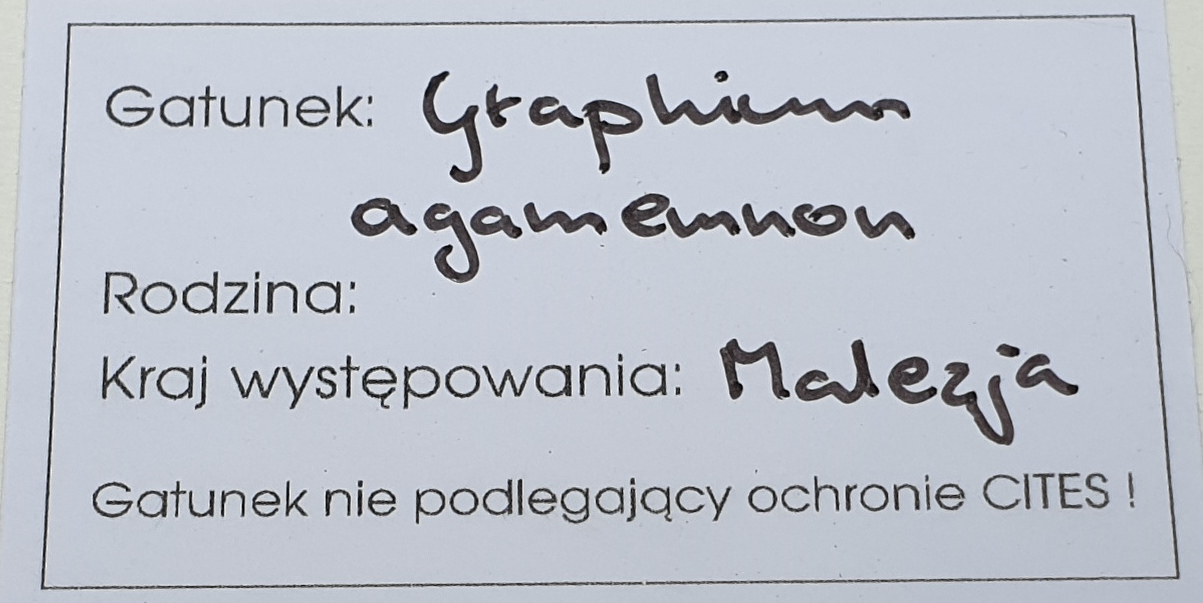 Gatunek: Graphium
agamemnon
Rodzina:
Kraj występowania: Malezja
Gatunek nie podlegający ochronie CITES !